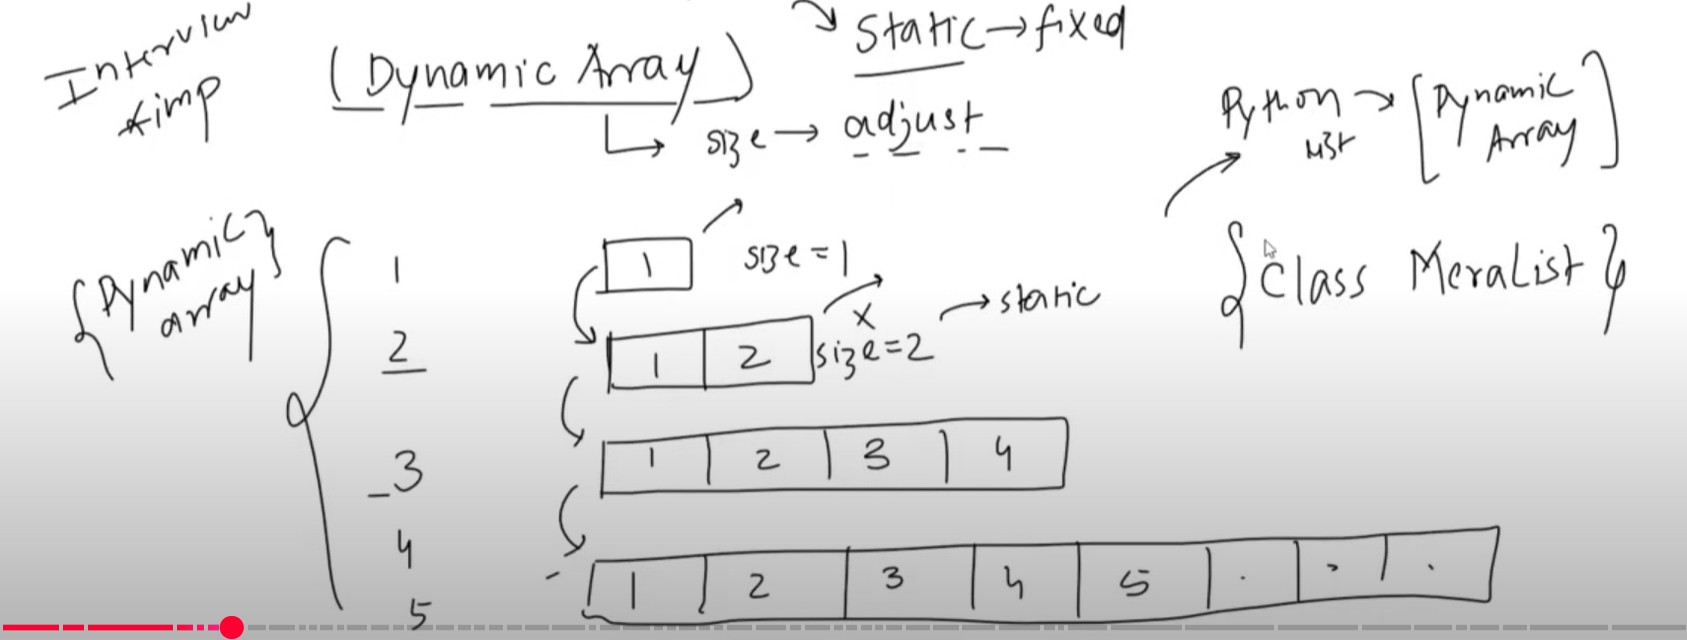 Interview
*imp
(Dynamic Array)
Static → fixed
size → adjust
Python list → [Dynamic Array]
{Class MeraList}
{Dynamic array}
1
2
3
4
5
1 size = 1
1 2 size = 2 x → static
1 2 3 4
1 2 3 4 5 . . .